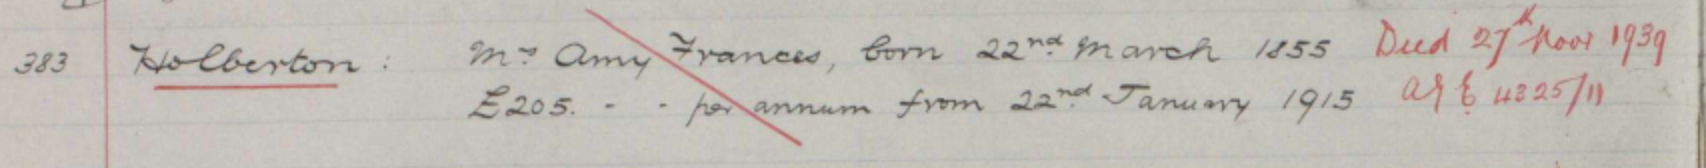 383 Holberton : Mrs Amy Frances, born 22nd March 1855 Died 27th Novr 1939
£205. - - per annum from 22nd January 1915 4325/11